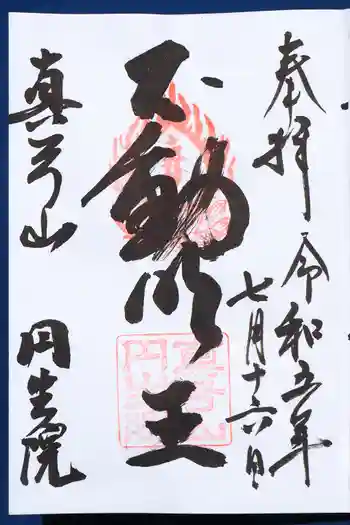 奉拝
令和五年
七月十六日
不動明王
真弓山
円生院